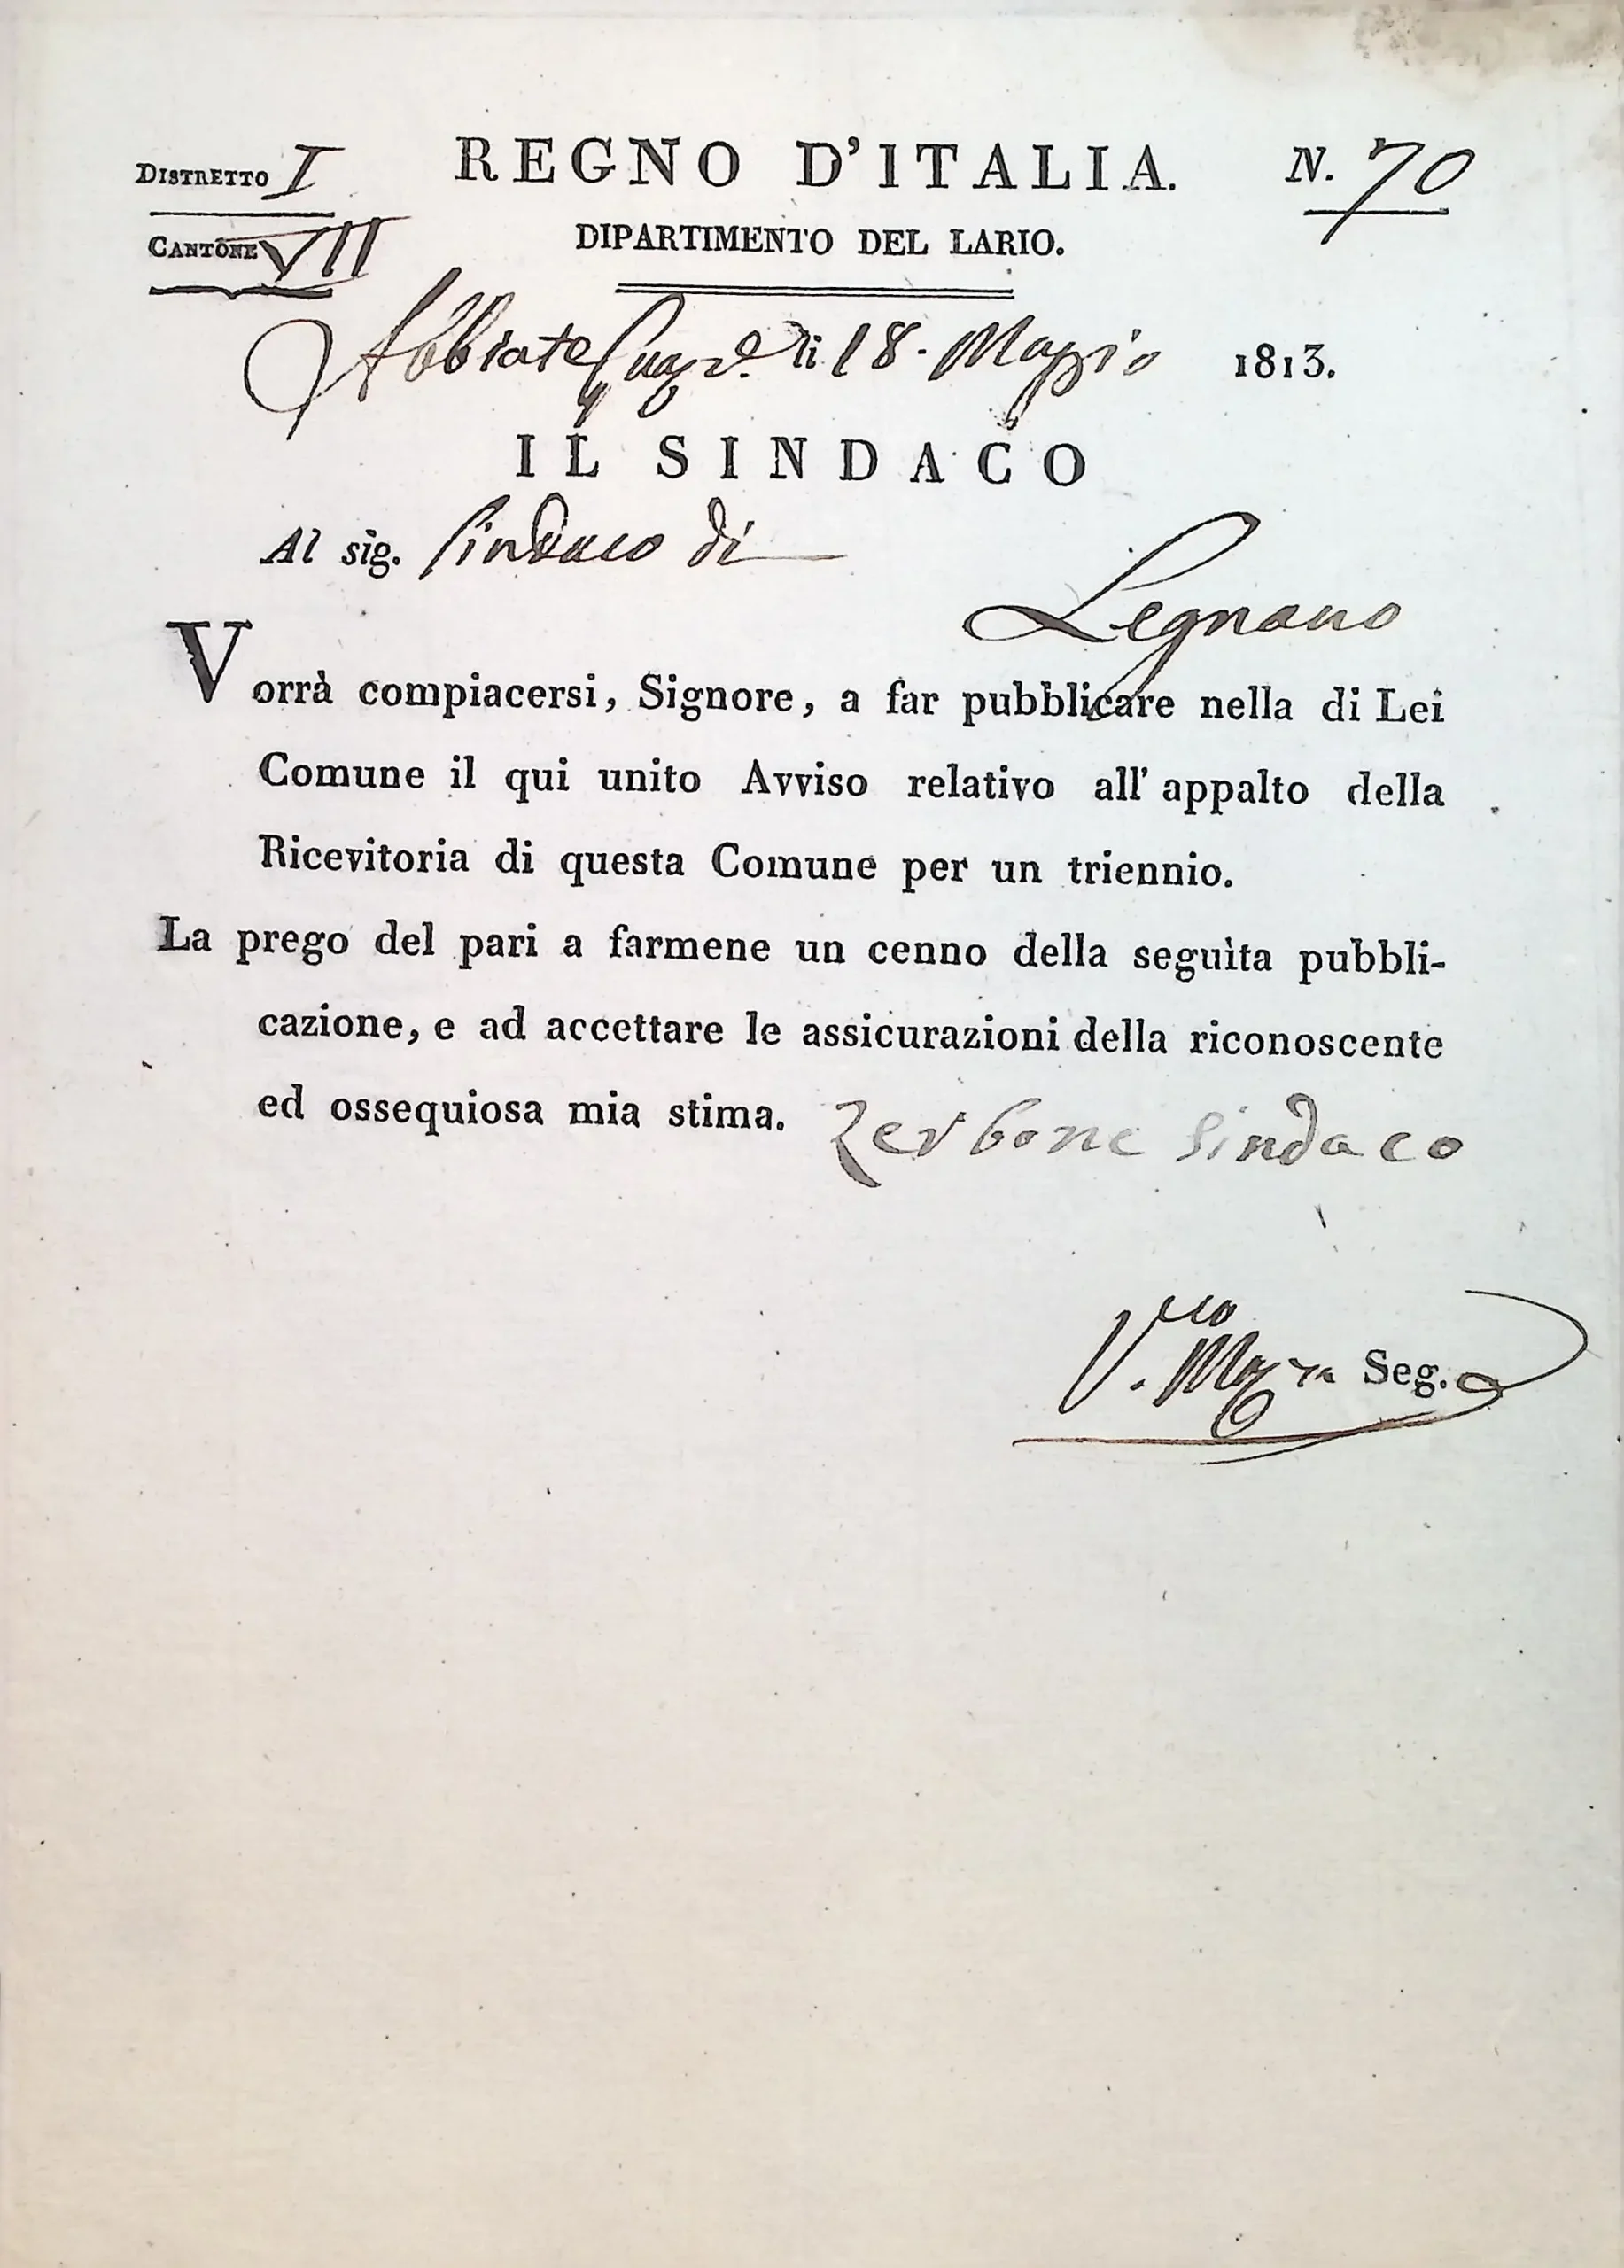 DISTRETTO I
REGNO D'ITALIA.
N. 70
CANTONE VII
DIPARTIMENTO DEL LARIO.
Abbiate Guaz.e li 18. Maggio 1813.
IL SINDACO
Al sig. Sindaco di
Legnano
Vorrà compiacersi, Signore, a far pubblicare nella di Lei
Comune il qui unito Avviso relativo all' appalto della
Ricevitoria di questa Comune per un triennio.
La prego del pari a farmene un cenno della seguìta pubbli-
cazione, e ad accettare le assicurazioni della riconoscente
ed ossequiosa mia stima. Zerbone Sindaco
Seg.